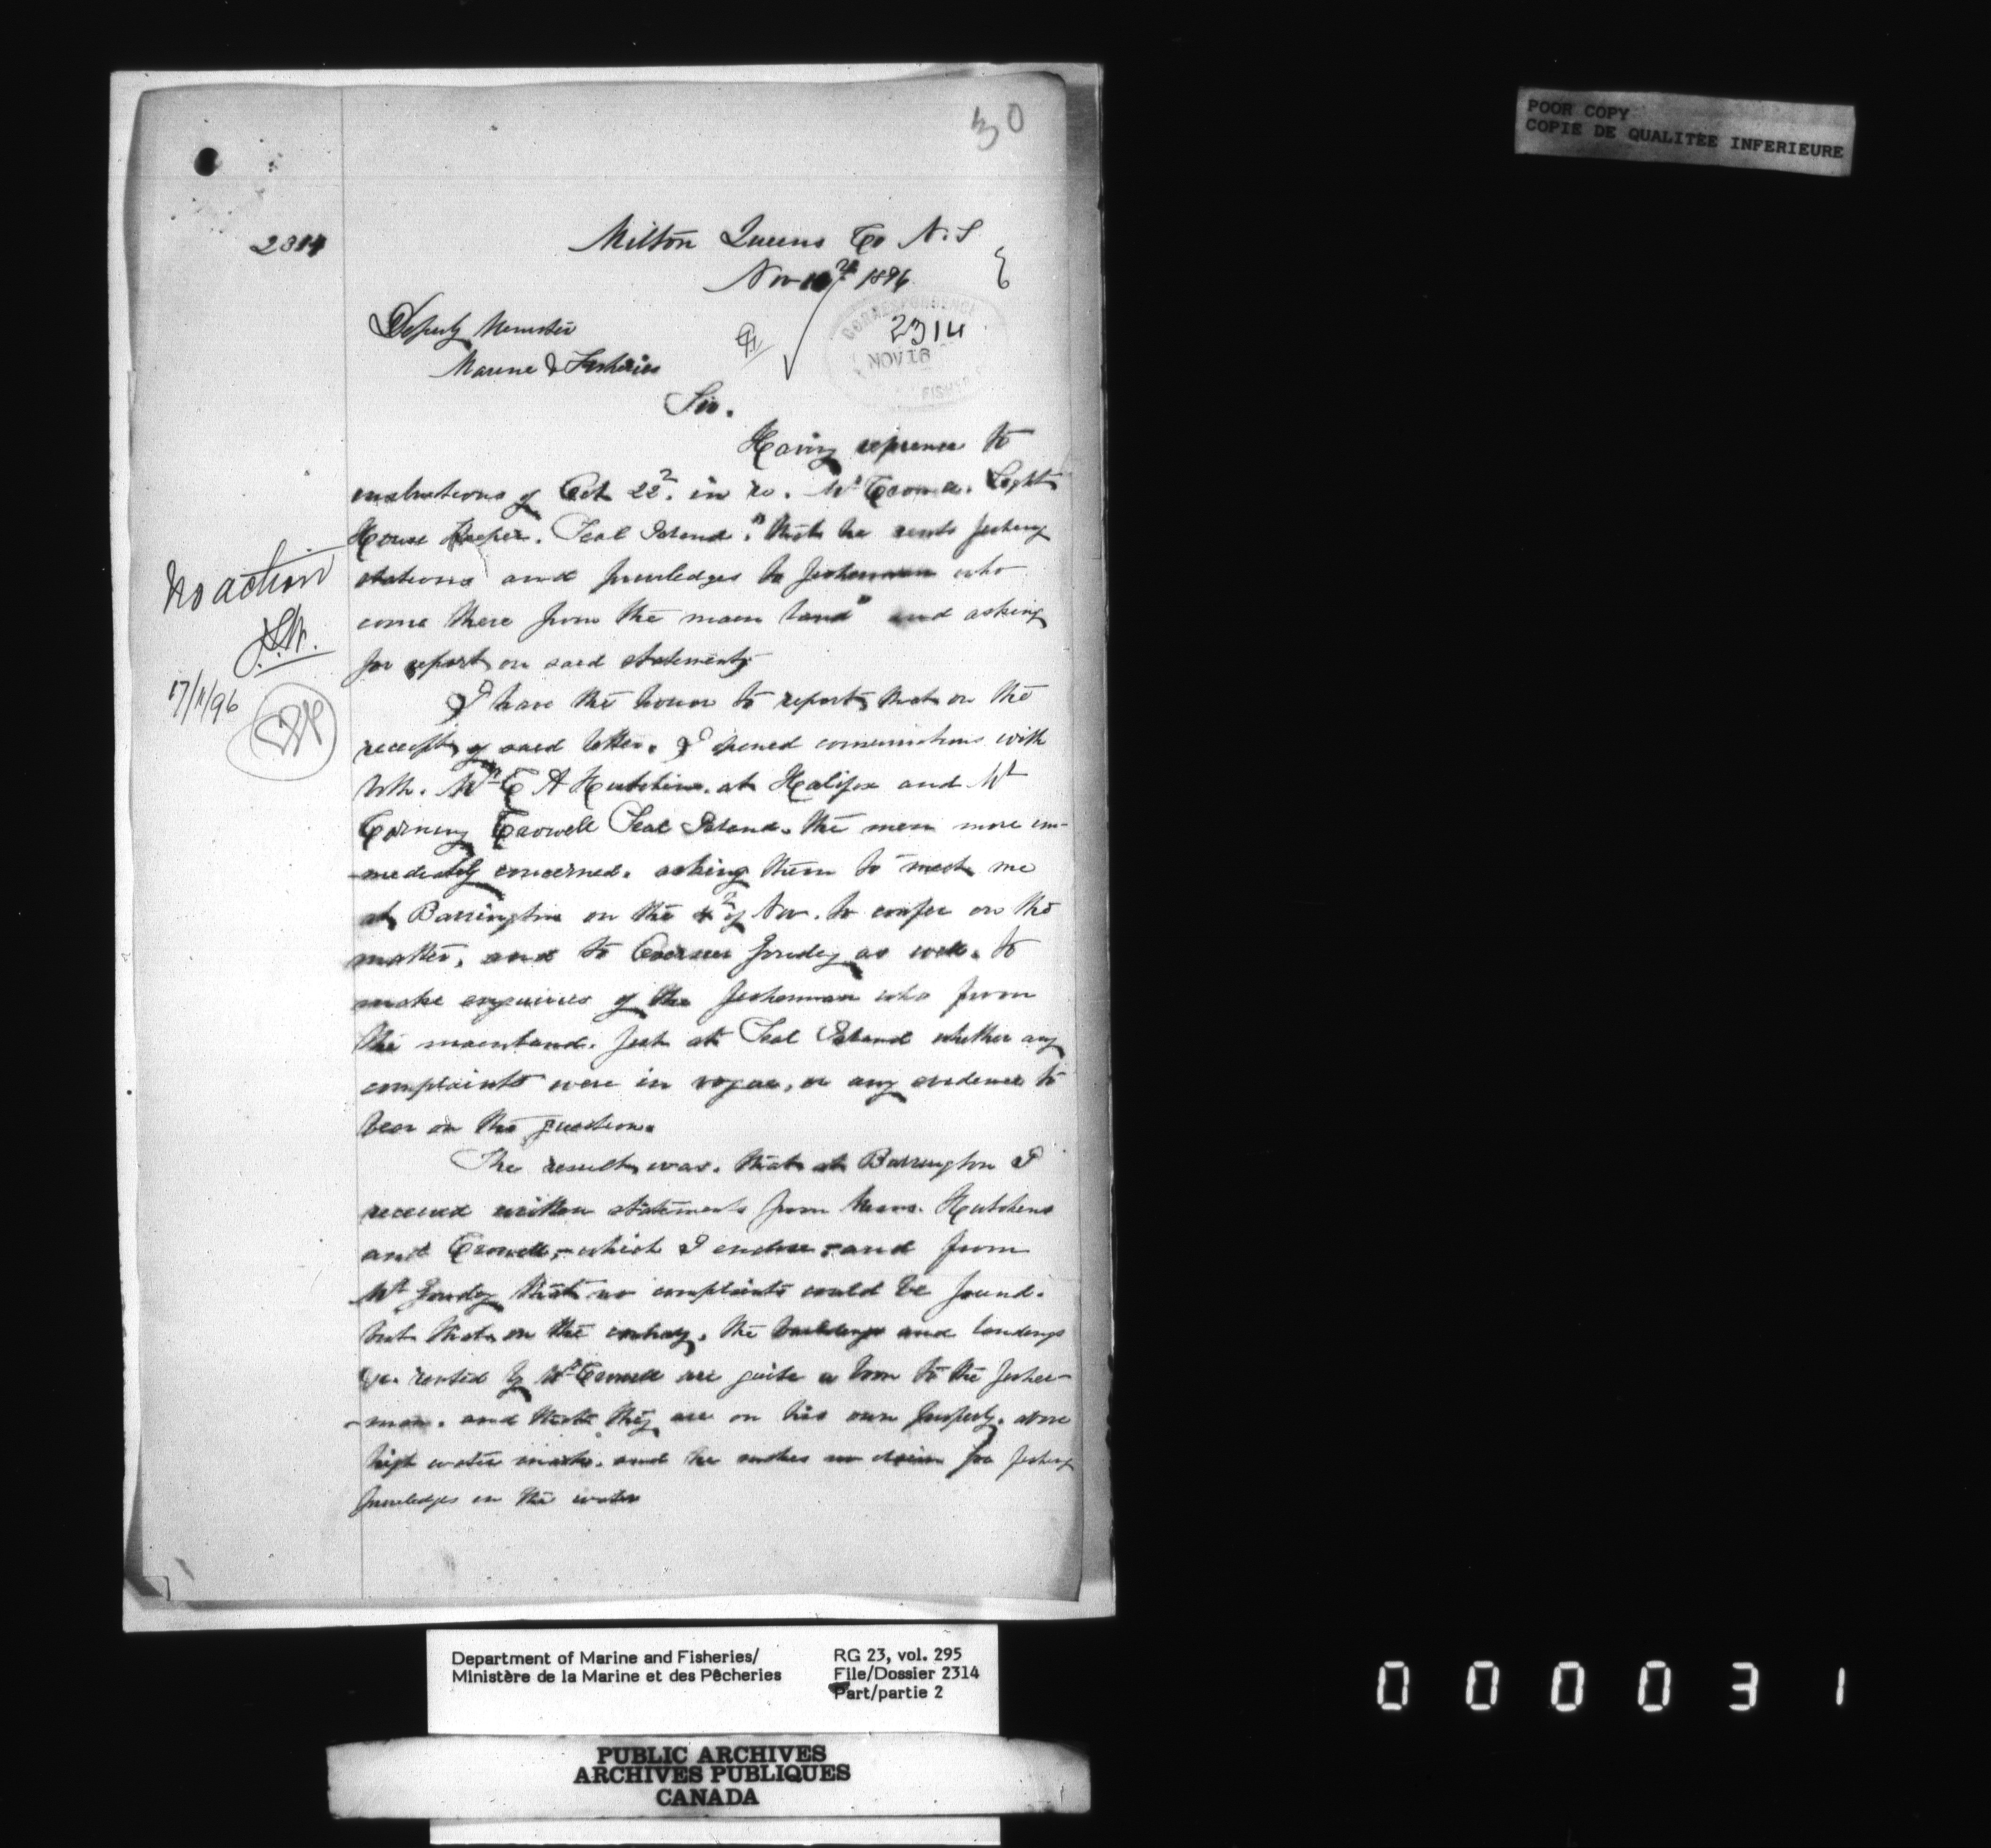 30
POOR COPY
COPIE DE QUALITEE INFERIEURE
2314
Milton Queens Co N.S
Nov 1896
CORRESPONDENCE
2314
NOV 18
FISHER
Deputy Minister
Marine & Fisheries
Sir.
Having reference to
instructions of Oct 22. in re. Mr Crowell. Light
House Keeper. Seal Island. "that he rents fishing
stations and priviledges to fishermen who
come there from the main land" and asking
for report on said statements
No action
17/11/96
I have the honor to report, that on the
receipt of said letter. I opened communications with
both. Mr C A Hutchins. at Halifax and Mr
Corning Crowell Seal Island. the men more im-
-mediately concerned. asking them to meet me
at Barrington on the of Nov. to confer on the
matter, and to Overseer as well. to
make enquiries of the fishermen who from
the mainland. fish at Seal Island whether any
complaints were in vogue, or any evidence to
bear on the question.
The result, was. that at Barrington I
received written statements from Messrs. Hutchins
and Crowell,- which I enclose,- and from
Mr that no complaints could be found.
but that on the contray, the buildings and landings
&c. rented by Mr Crowell are quite a boon to the fisher-
-man. and that they are on his own property. above
high water mark. and he makes no claim for fishing
priviledges in the water
Department of Marine and Fisheries/
Ministère de la Marine et des Pêcheries
RG 23, vol. 295
File/Dossier 2314
Part/partie 2
PUBLIC ARCHIVES
ARCHIVES PUBLIQUES
CANADA
000031